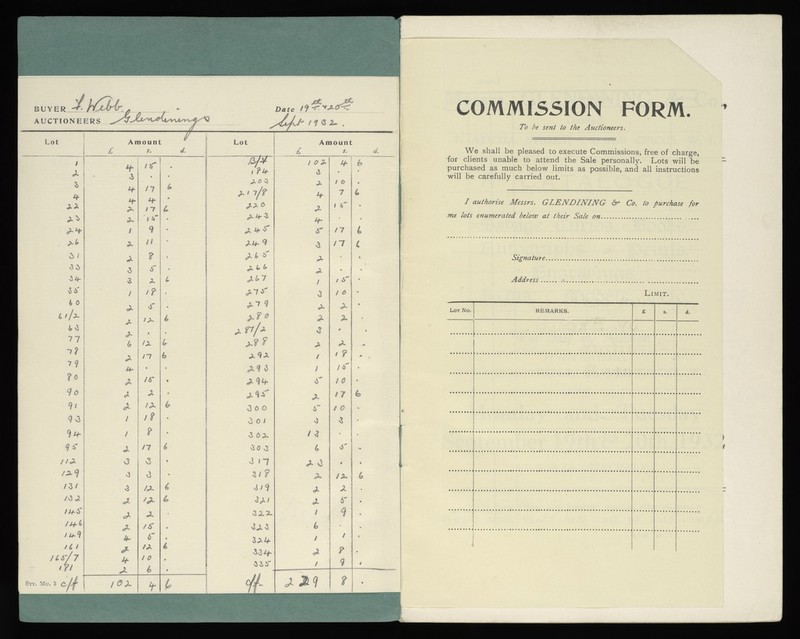 BUYER F. Webb.
Date 19th & 20th
AUCTIONEERS Glendinings
Sept 1932.
Lot Amount £ s. d.
1 4 15 .
2 3 . .
3 4 17 6
4 4 4 .
22 2 17 6
23 2 15 .
24 1 9 .
26 2 11 .
31 2 8 .
33 3 5 .
34 3 2 6
35 1 18 .
60 2 5 .
61/2 2 12 6
63 2 . .
77 6 12 6
78 2 17 6
79 4 . .
80 2 15 .
90 2 2 .
91 2 12 6
93 1 18 .
94 1 8 .
95 2 17 6
112 3 3 .
129 3 3 .
131 3 12 6
132 2 12 6
145 2 2 .
146 2 15 .
149 4 5 .
161 2 12 6
165/7 4 10 .
181 2 6 .
c/f 102 4 6
Lot Amount £ s. d.
B/F 102 4 6
184 3 . .
203 2 10 .
217/8 4 7 6
220 2 15 .
243 4 . .
245 5 17 6
249 3 17 6
265 2 . .
266 2 . .
267 1 15 .
275 3 10 .
279 2 2 .
280 2 2 .
281/2 3 . .
288 2 2 .
292 1 18 .
293 1 15 .
294 5 10 .
295 2 17 6
300 5 10 .
301 3 3 .
302 13 . .
303 6 5 .
317 23 . .
318 2 12 6
319 2 2 .
321 2 5 .
322 1 9 .
323 6 . .
324 1 1 .
334 2 8 .
335 1 9 .
c/f 229 8 .
COMMISSION FORM.
To be sent to the Auctioneers.
We shall be pleased to execute Commissions, free of charge,
for clients unable to attend the Sale personally. Lots will be
purchased as much below limits as possible, and all instructions
will be carefully carried out.
I authorise Messrs. GLENDINING & Co. to purchase for
me lots enumerated below at their Sale on
Signature
Address
LIMIT.
LOT NO. REMARKS. £ s. d.